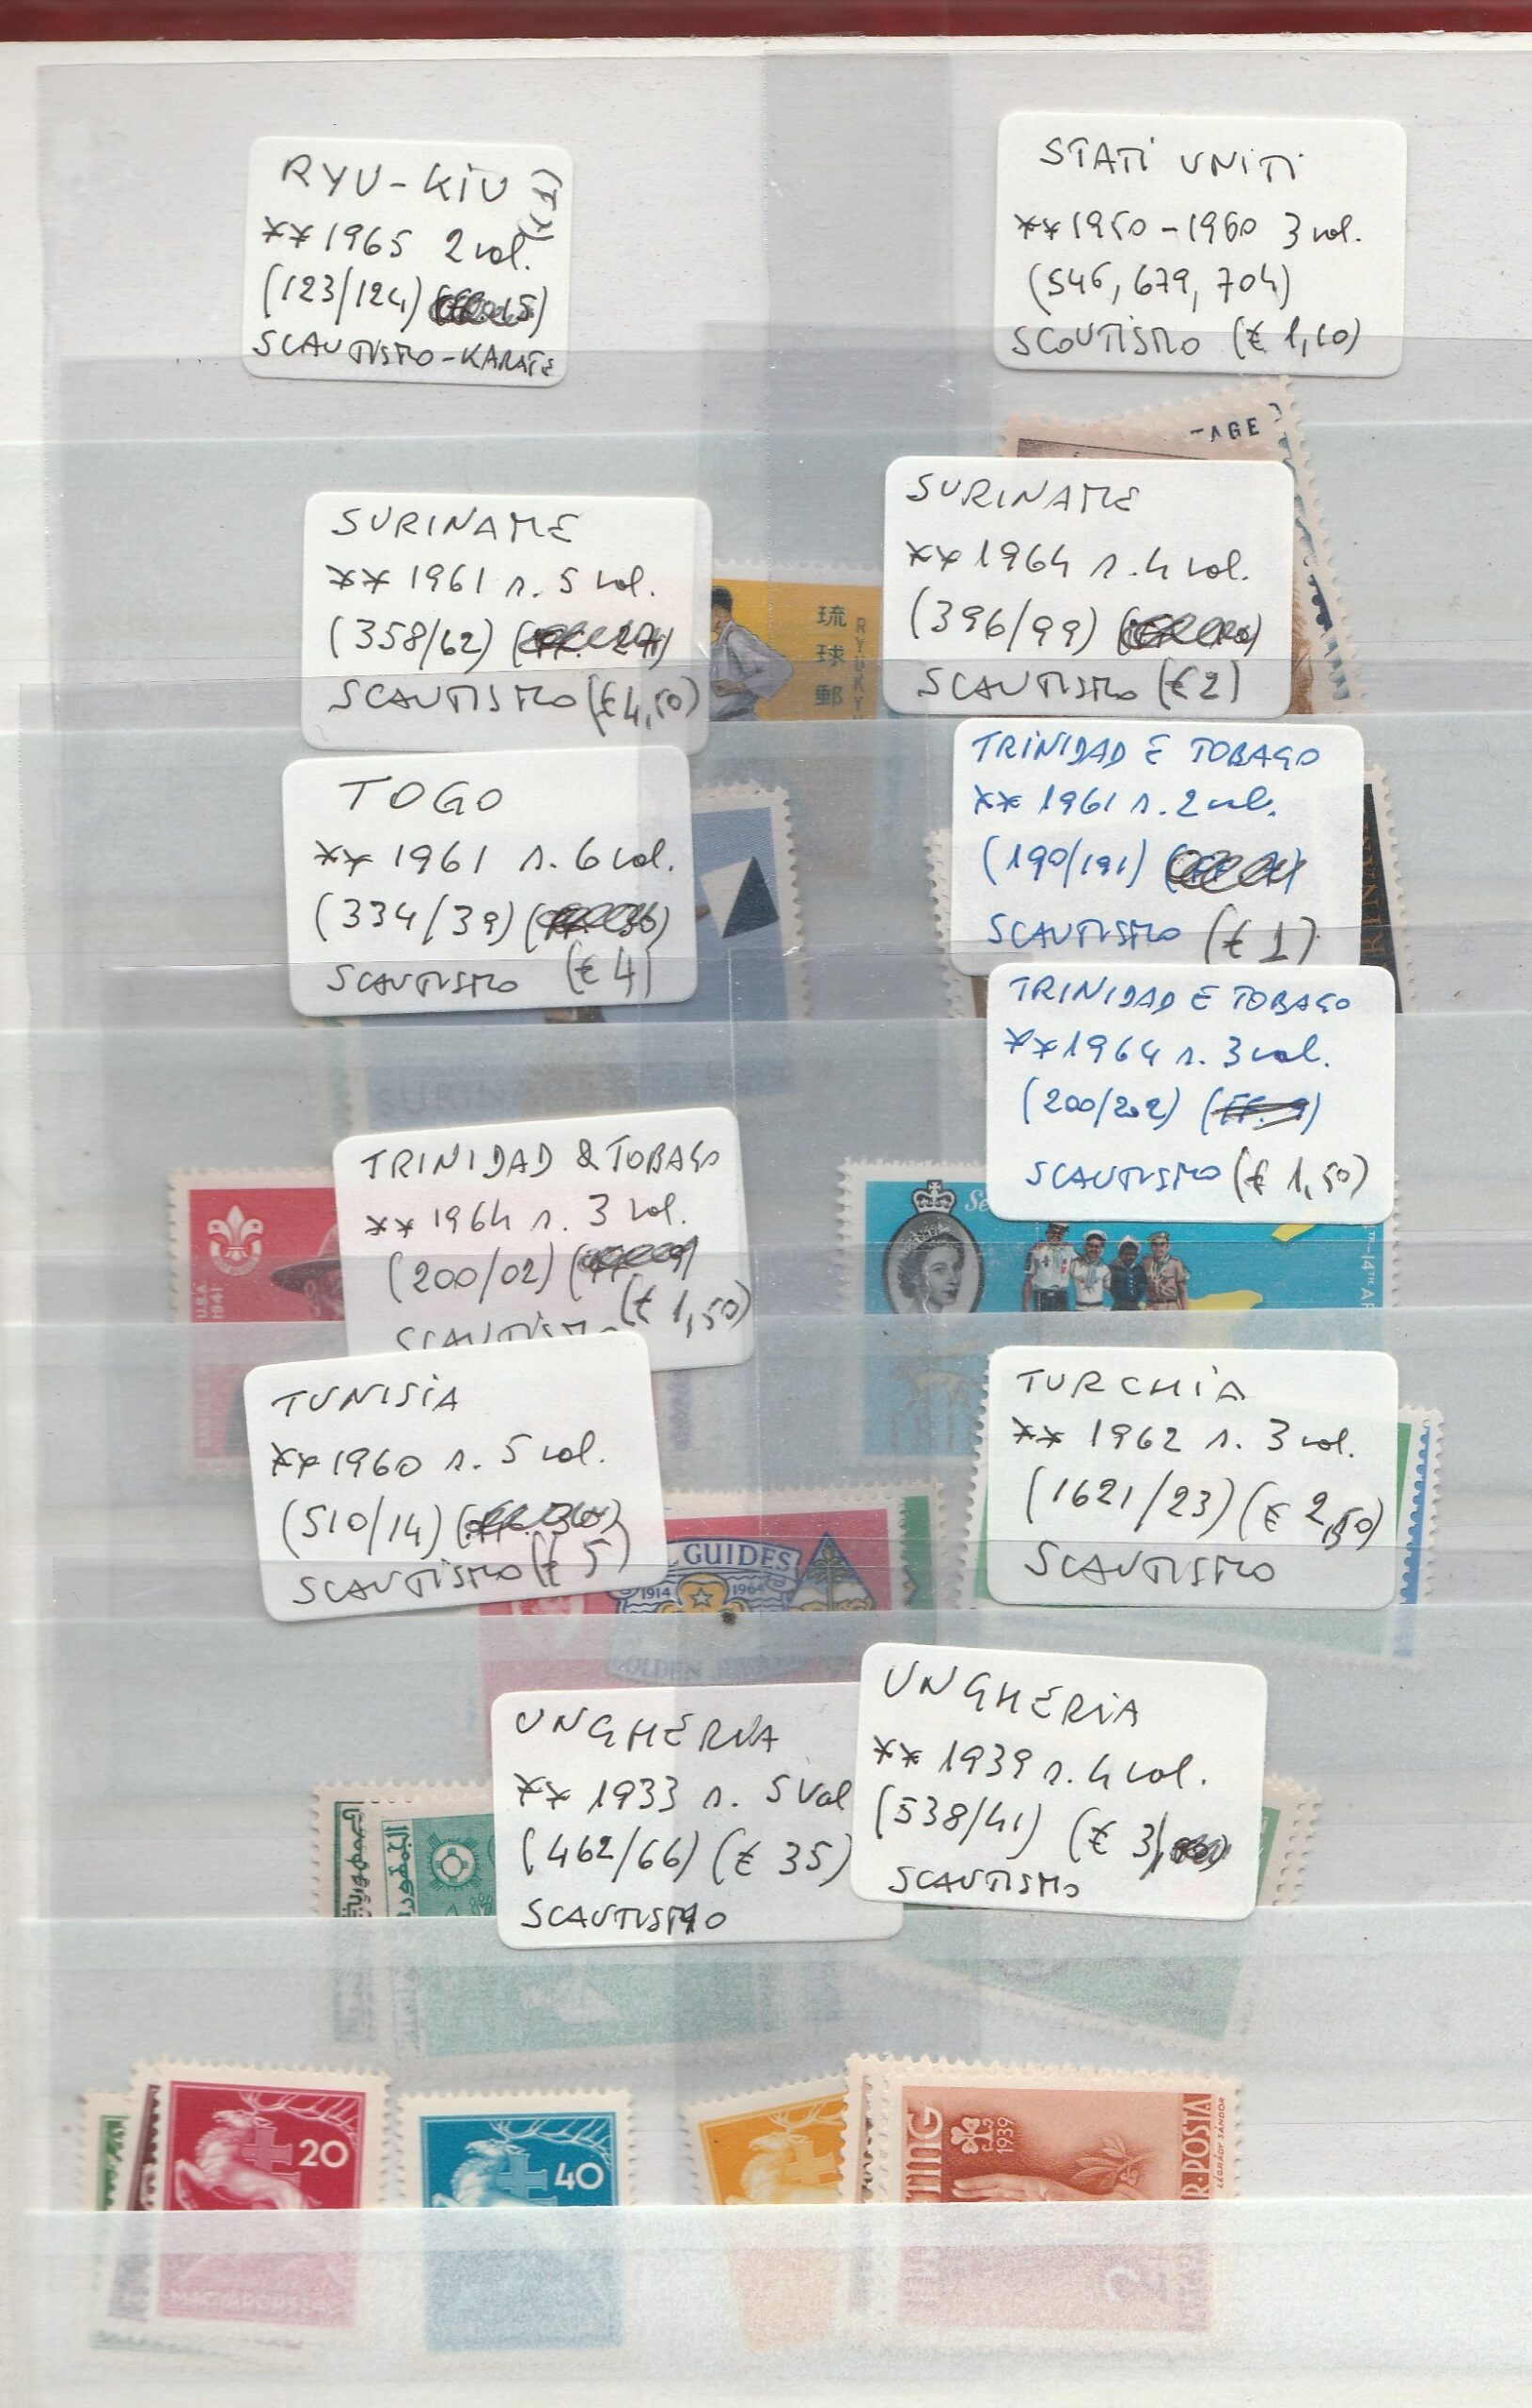 RYU-KIU
** 1965 2 vol.
(123/124)
SCAUTISMO-KARATE
STATI UNITI
** 1950-1960 3 vol.
(546, 679, 704)
SCOUTISMO (€ 1,10)
-AGE
SURINAME
** 1961 s. 5 vol.
(358/62)
SCAUTISMO (€ 4,50)
琉球郵
RYUKY
SURINAME
** 1964 s. 4 vol.
(396/99)
SCAUTISMO (€ 2)
TOGO
** 1961 s. 6 vol.
(334/39)
SCAUTISMO (€ 4)
TRINIDAD E TOBAGO
** 1961 s. 2 vol.
(190/191)
SCAUTISMO (€ 1)
RINAM
SURIN
TRINIDAD E TOBAGO
** 1964 s. 3 vol.
(200/202)
SCAUTISMO (€ 1,50)
TRINIDAD & TOBAGO
** 1964 s. 3 vol.
(200/02)
(€ 1,50)
SCAUTISMO
U.S.A.
1941
Se
TH-14TH AP
TUNISIA
** 1960 s. 5 vol.
(510/14)
SCAUTISMO (€ 5)
TURCHIA
** 1962 s. 3 vol.
(1621/23) (€ 2,50)
SCAUTISMO
L GUIDES
1914 1964
GOLDEN
UNGHERIA
** 1933 s. 5 Val
(462/66) (€ 35)
SCAUTISMO
UNGHERIA
** 1939 s. 4 vol.
(538/41) (€ 3)
SCAUTISMO
20
MAGYARORSZÁG
40
TING
1939
R.POSTA
LÉGRÁDY SÁNDOR
2